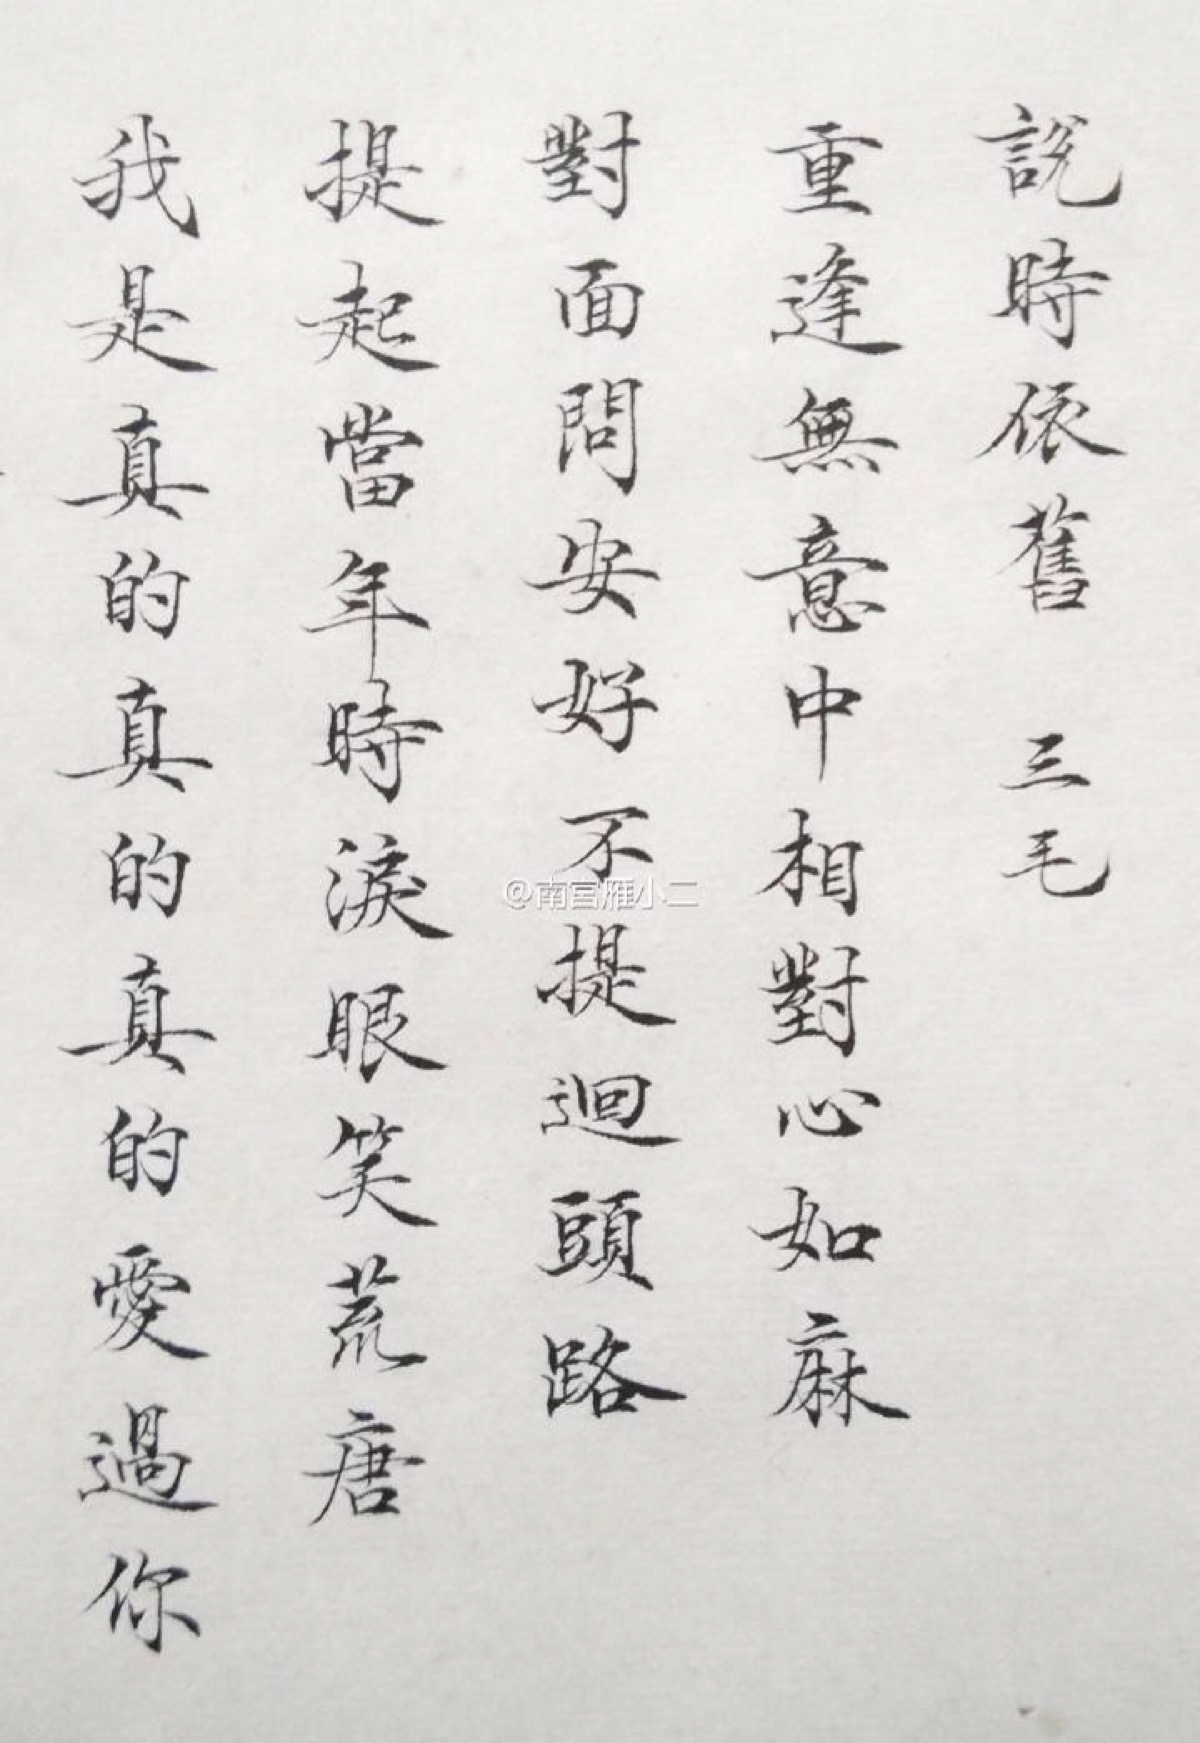 說時依舊 三毛
重逢無意中相對心如麻
對面問安好不提迴頭路
提起當年時淚眼笑荒唐
我是真的真的真的愛過你
@南宫雁小二